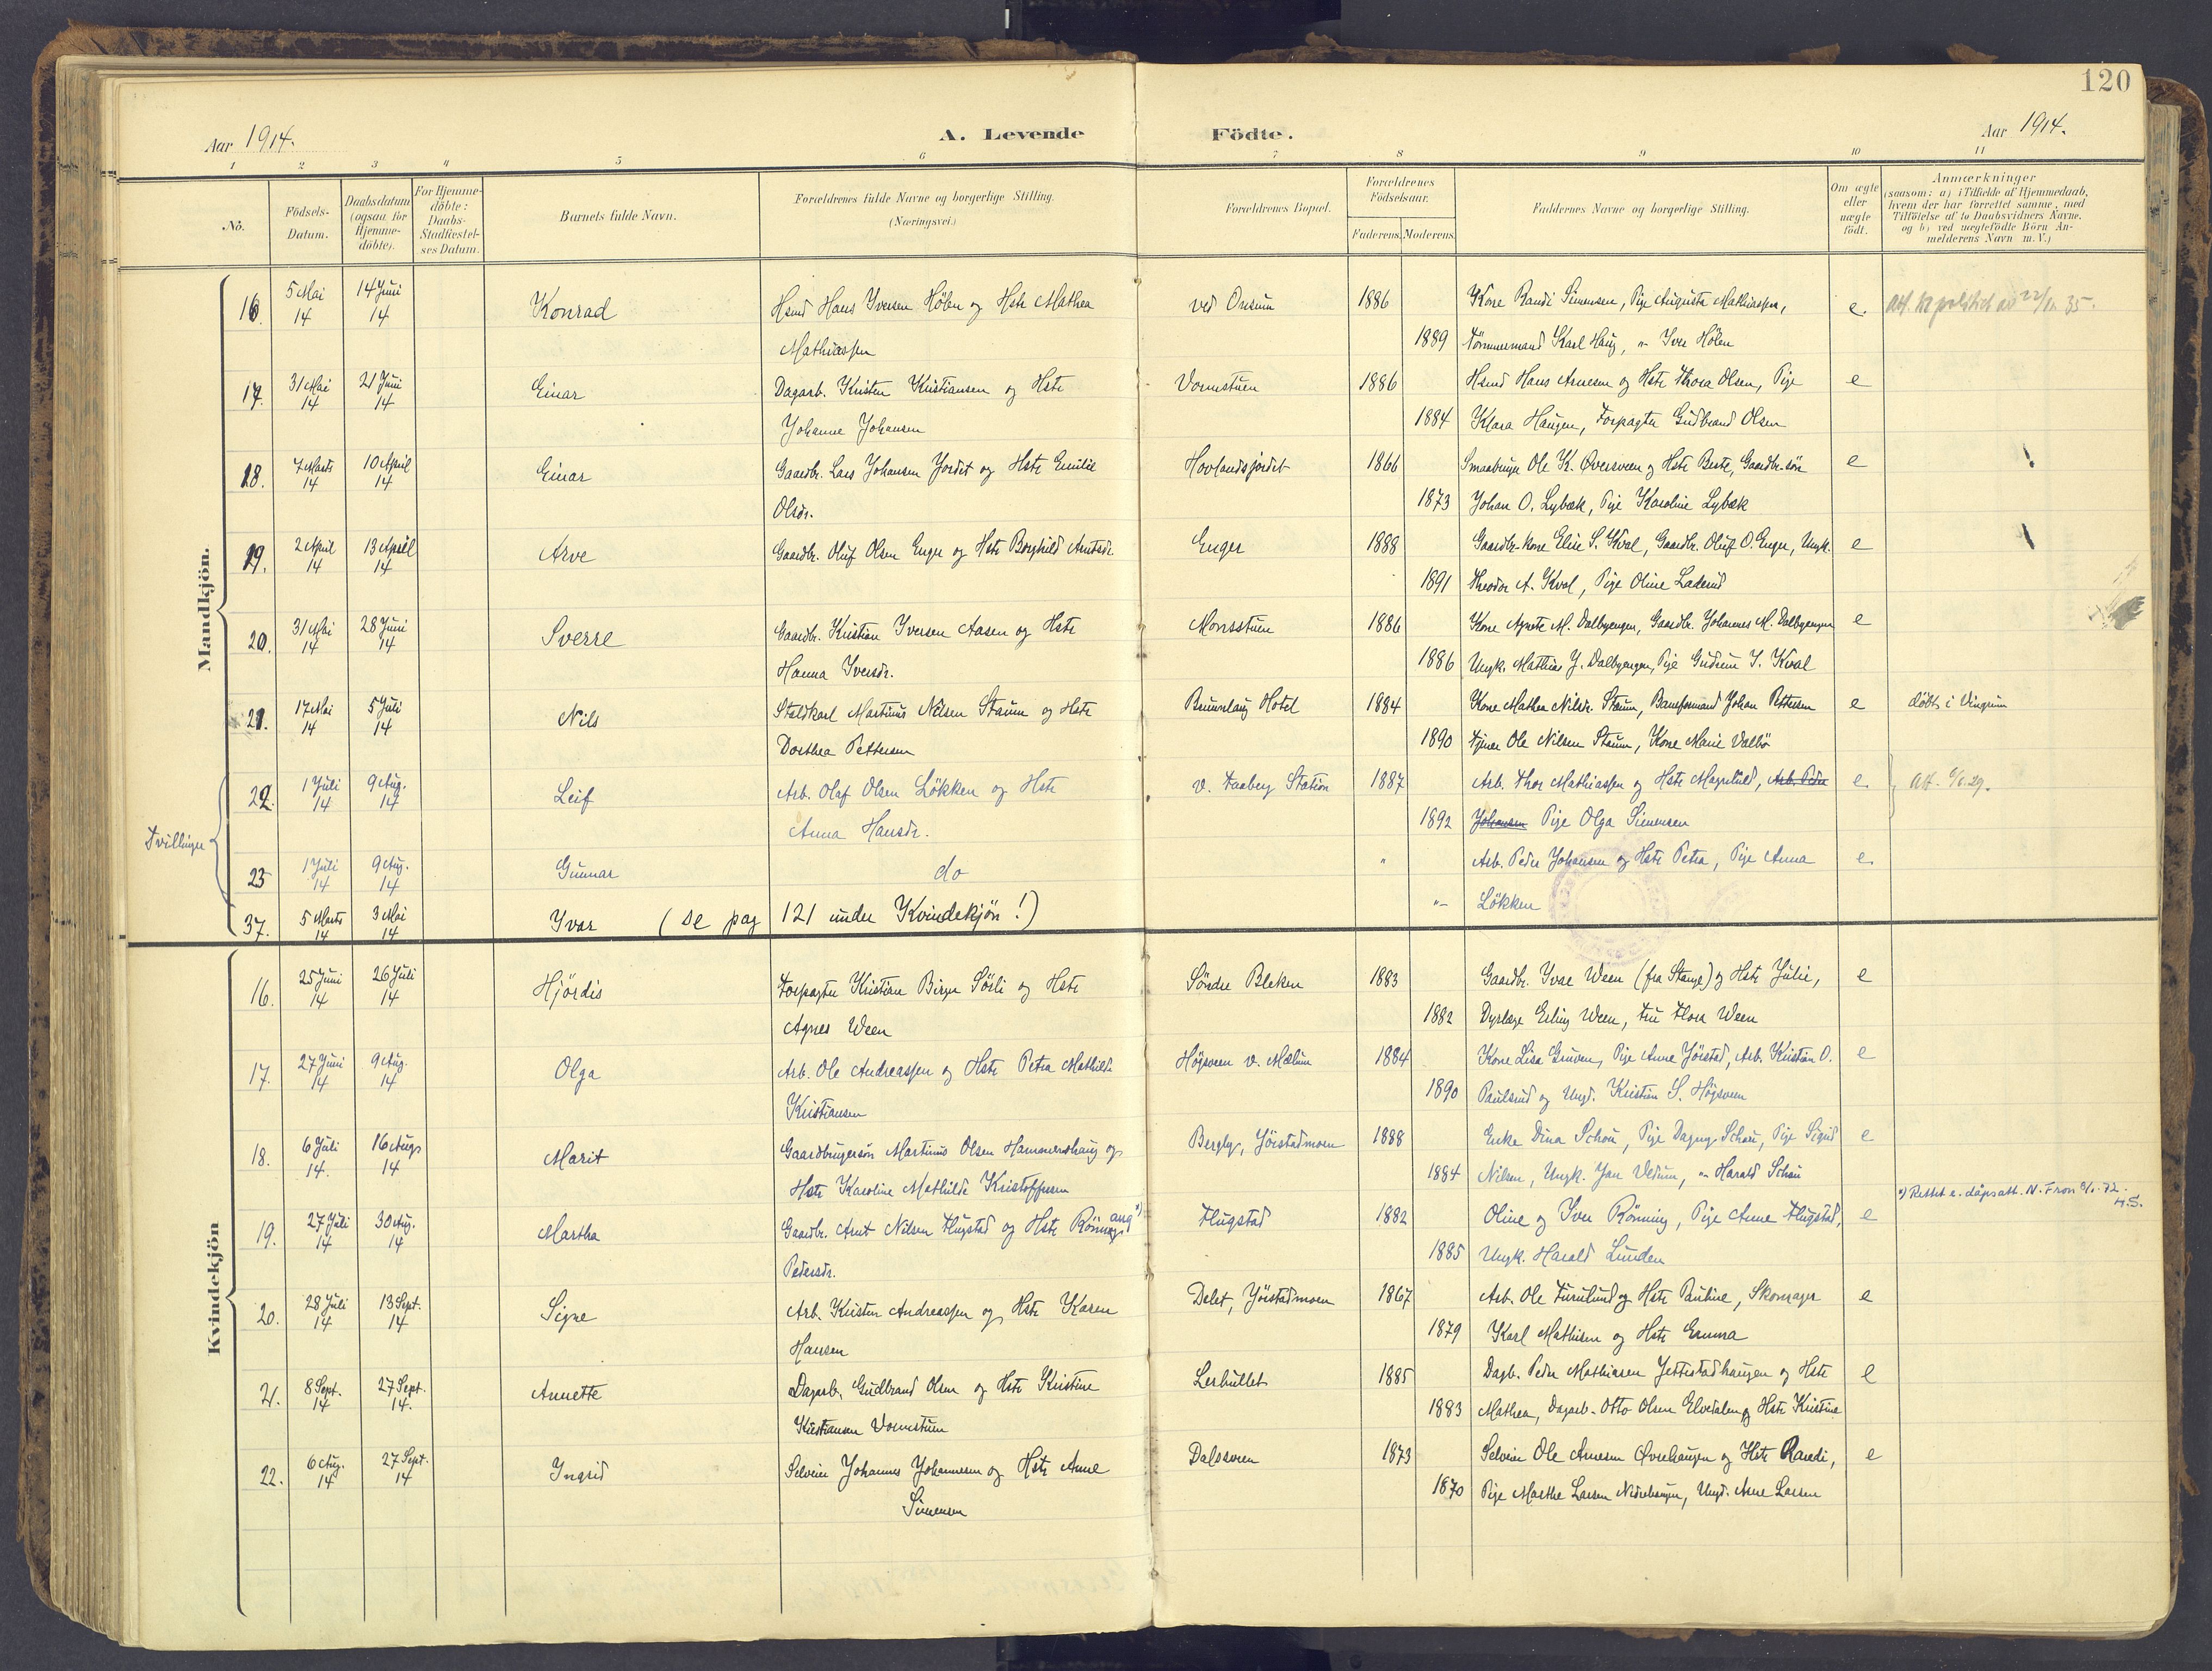 120
Aar 1914.
A. Levende Födte.
Aar 1914.
1 2 3 4 5 6 7 8 9 10 11
No.
Födsels-Datum.
Daabsdatum (ogsaa for Hjemme-döbte).
For Hjemme-döbte: Daabs-Stadfæstel-ses Datum.
Barnets fulde Navn.
Forældrenes fulde Navne og borgerlige Stilling. (Næringsvei.)
Forældrenes Bopæl.
Forældrenes Födselsaar.
Faderens. Moderens.
Faddernes Navne og borgerlige Stilling.
Om ægte eller uægte födt.
Anmærkninger
(saasom: a) i Tilfælde af Hjemmedaab,
hvem der har forrettet samme, med
Tilföielse af to Daabsvidners Navne.
og b) ved uægtefödte Börn An-
melderens Navn m. V.)
Mandkjön.
16. 5 Mai 14 14 Juni 14 Konrad Hsmd Hans Iversen Hölen og Hstr Mathea ved Onsum 1886 Kone Randi Simensen, Pige Augusta Mathiassen, e.
Mathiassen 1889 Tömmermand Karl Haug, " Iver Hölen
17. 31 Mai 14 21 Juni 14 Einar Dagarb. Kristen Kristiansen og Hstr Vormstuen 1886 Hsmd Hans Arnesen og Hstr Thora Olsen, Pige e
Johanne Johansen 1884 Klara Haugen, Forpagter Gudbrand Olsen
18. 7 Marts 14 10 April 14 Einar Gaardbr. Lars Johansen Jordet og Hstr Emilie Hovlandsjordet 1866 Smaabruger Ole K. Øversveen og Hstr Berte, Gaardbr.sön e
Olsdr. 1873 Johan O. Lybæk, Pige Karoline Lybæk
19. 2 April 14 13 April 14 Arve Gaardbr. Oluf Olsen Enger og Hstr Borghild Arntsdr. Enger 1888 Gaardbr.kone Elise S. Kval, Gaardbr. Oluf O. Enger, Ungk. e
1891 Theodor A. Kval, Pige Oline Laderud
20. 31 Mai 14 28 Juni 14 Sverre Gaardbr. Kristian Iversen Aasen og Hstr Monsstuen 1886 Kone Agnete M. Dalbyengen, Gaardbr. Johannes M. Dalbyengen e
Hanna Iversdr. 1886 Ungk. Mathias J. Dalbyengen, Pige Gudrun S. Kval
21. 17 Mai 14 5 Juli 14 Nils Staldkarl Martinus Nilsen Staum og Hstr Brunnlaug Hotel 1884 Kone Mathea Nilsdr. Staum, Baneformand Johan Pettersen e döbt i Vingrum
Dorthea Pettersen 1890 Tjener Ole Nilsen Staum, Kone Marie Dalbö
Tvillinger
22. 1 Juli 14 9 Aug. 14 Leif Arb. Olaf Olsen Lökken og Hstr v. Faaberg Station 1887 Arb. Thor Mathiassen og Hstr Magnhild, Arb. Peder e.
Anna Hansdr. 1892 Johansen Pige Olga Simensen
23 1 Juli 14 9 Aug. 14 Gunnar do " Arb. Peder Johansen og Hstr Petra, Pige Anna e.
"- Lökken
37. 5 Marts 14 3 Mai 14 Ivar (se pag 121 under Kvindekjön!)
Kvindekjön
16. 25 Juni 14 26 Juli 14 Hjördis Forpagter Kristian Birger Sörli og Hstr Söndre Bleken 1883 Gaardbr. Ivar Ween (fra Stange) og Hstr Julie, e
Agnes Ween 1882 Dyrlæge Erling Ween, Fru Flora Ween
17. 27 Juni 14 9 Aug. 14 Olga Arb. Ole Andreassen og Hstr Petra Mathilde Högsveen v. Mælum 1884 Kone Lisa Gruven, Pige Anna Jörstad, Arb. Kristian O. e
Kristiansen 1890 Paulsrud og Ungd. Kristian S. Högsveen
18. 6 Juli 14. 16 Augs 14 Marit Gaardbrugersön Martinus Olsen Hammershaug og Bergly, Jörstadmoen 1888 Enke Dina Schou, Pige Dagny Schou, Pige Sigrid e
Hstr Karoline Mathilde Kristoffersen 1884 Nilsen, Ungk. Jan Vedum, " Harald Schou
19. 27 Juli 14 30 Aug. 14 Martha Gaardbr. Arnt Nilsen Flugstad og Hstr Rönnaug *) Flugstad 1882 Oline og Iver Rönning, Pige Anne Flugstad, e *) Rettet e. dåpsatt. N. Fron 6/1-72. H.S.
Pedersdr. 1885 Ungk. Harald Lunden
20. 28 Juli 14 13 Sept. 14 Signe Arb. Kristen Andreassen og Hstr Karen Delet, Jörstadmoen 1867 Arb. Ole Furulund og Hstr Pauline, Skomager e
Hansen 1879 Karl Mathisen og Hstr Emma
21. 8 Sept. 14 27 Sept. 14. Annette Dagarb. Gudbrand Olsen og Hstr Kristine Lerhullet 1885 Dagb. Peder Mathiasen Jettestadhaugen og Hstr e
Kristiansen Vormstuen 1883 Mathea, Dagarb. Otto Olsen Elvedalen og Hstr Kristine
22. 6 Aug. 14 27 Sept. 14 Ingrid Selveier Johannes Johannesen og Hstr Anne Dalssveen 1873 Selveier Ole Arnesen Øvrehaugen og Hstr Randi, e
Simensen 1870 Pige Marthe Larsen Nedrehaugen, Ungd. Arne Larsen